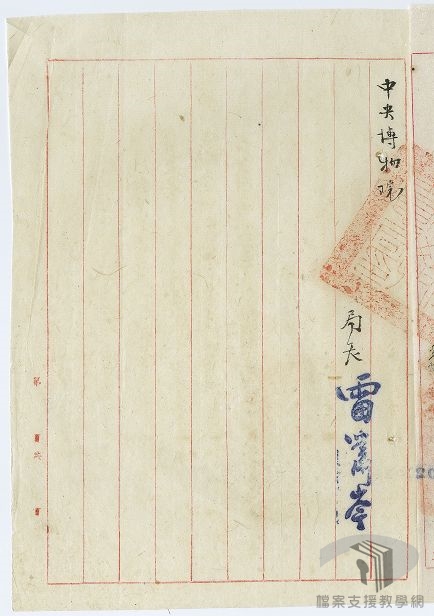 中央博物院
局長
雷嘯岑
第 頁共 頁
檔案支援教學網